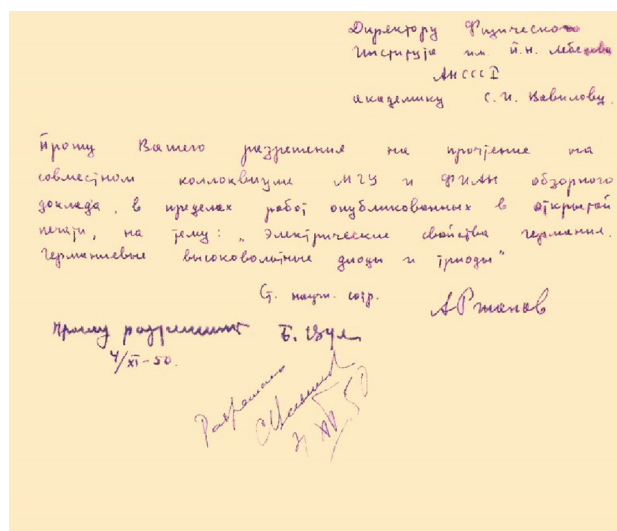 Директору Физического
Института им. П.Н. Лебедева
АНСССР
академику С.И. Вавилову.
Прошу Вашего разрешения на прочтение на
совместном коллоквиуме МГУ и ФИАН обзорного
доклада, в пределах работ опубликованных в открытой
печати, на тему: „Электрические свойства германия.
Германиевые высоковольтные диоды и триоды"
Ст. научн. сотр. АРжанов
Прошу разрешить Б. Вул
4/XI-50.
Разрешаю
СВавилов
XI 50